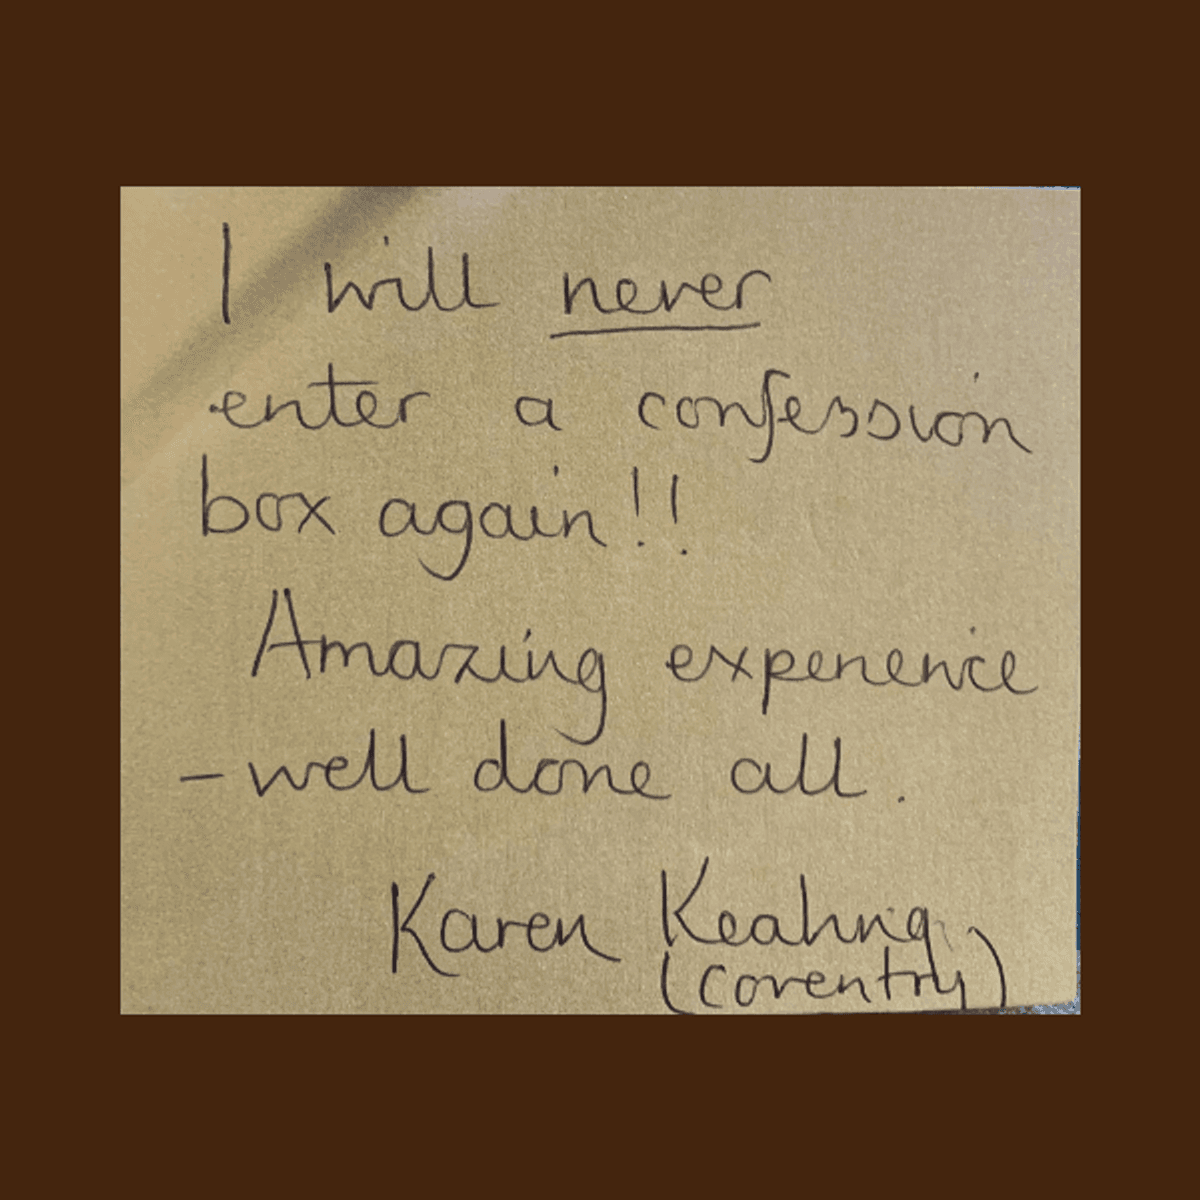 I will never
enter a confession
box again!!
Amazing experience
- well done all.
Karen Keating
(Coventry)